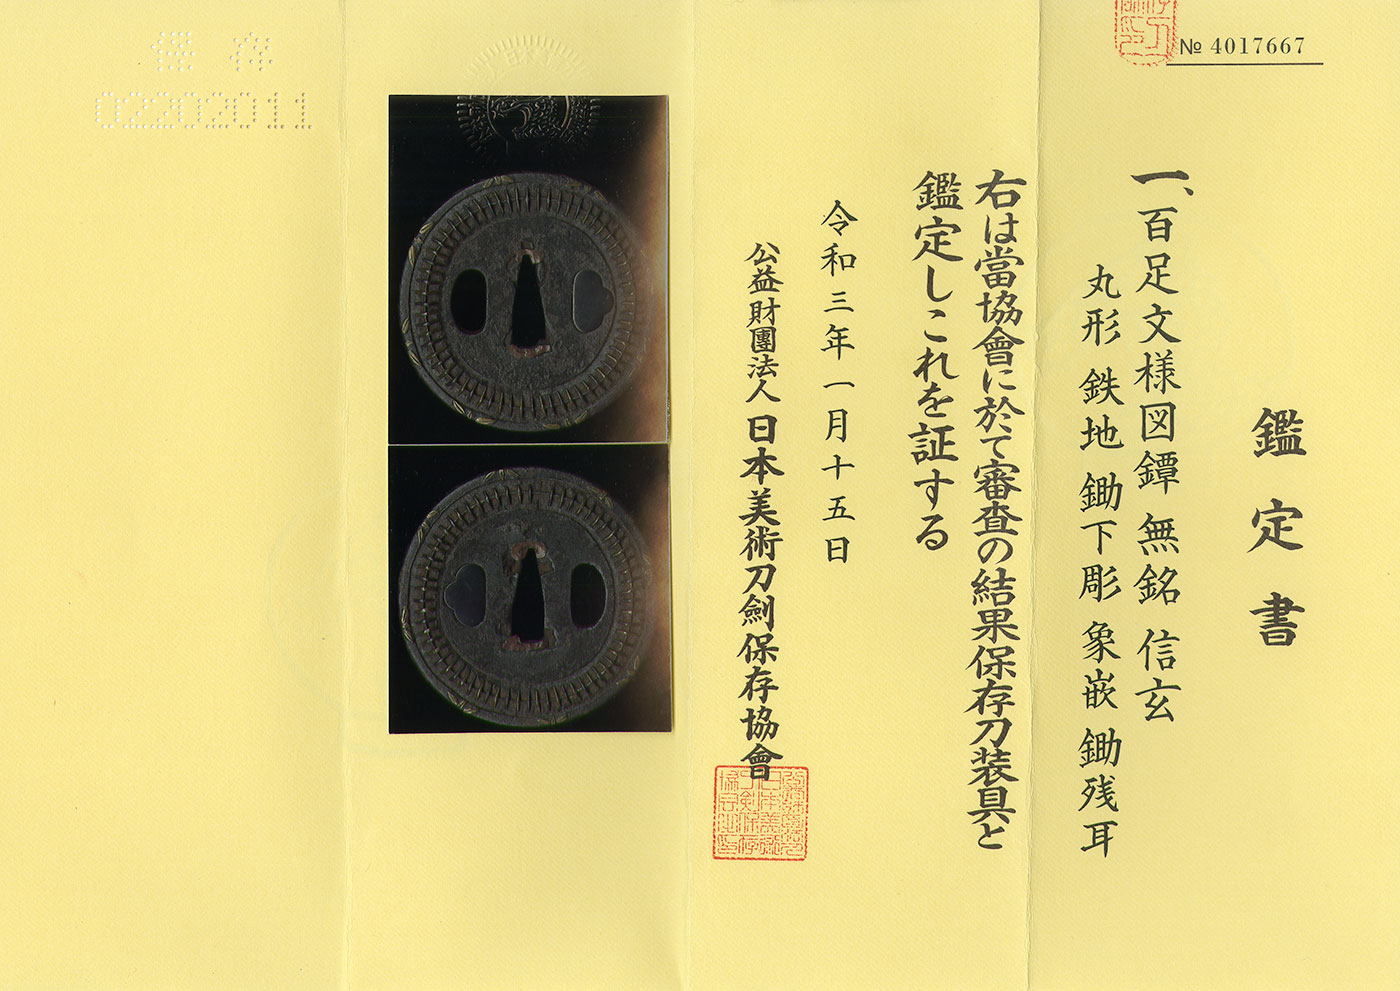 № 4017667
鑑定書
一、百足文様図鐔 無銘 信玄
丸形 鉄地 鋤下彫 象嵌 鋤残耳
右は當協會に於て審査の結果保存刀装具と
鑑定しこれを証する
令和三年一月十五日
公益財團法人 日本美術刀劍保存協會
保存
02202011